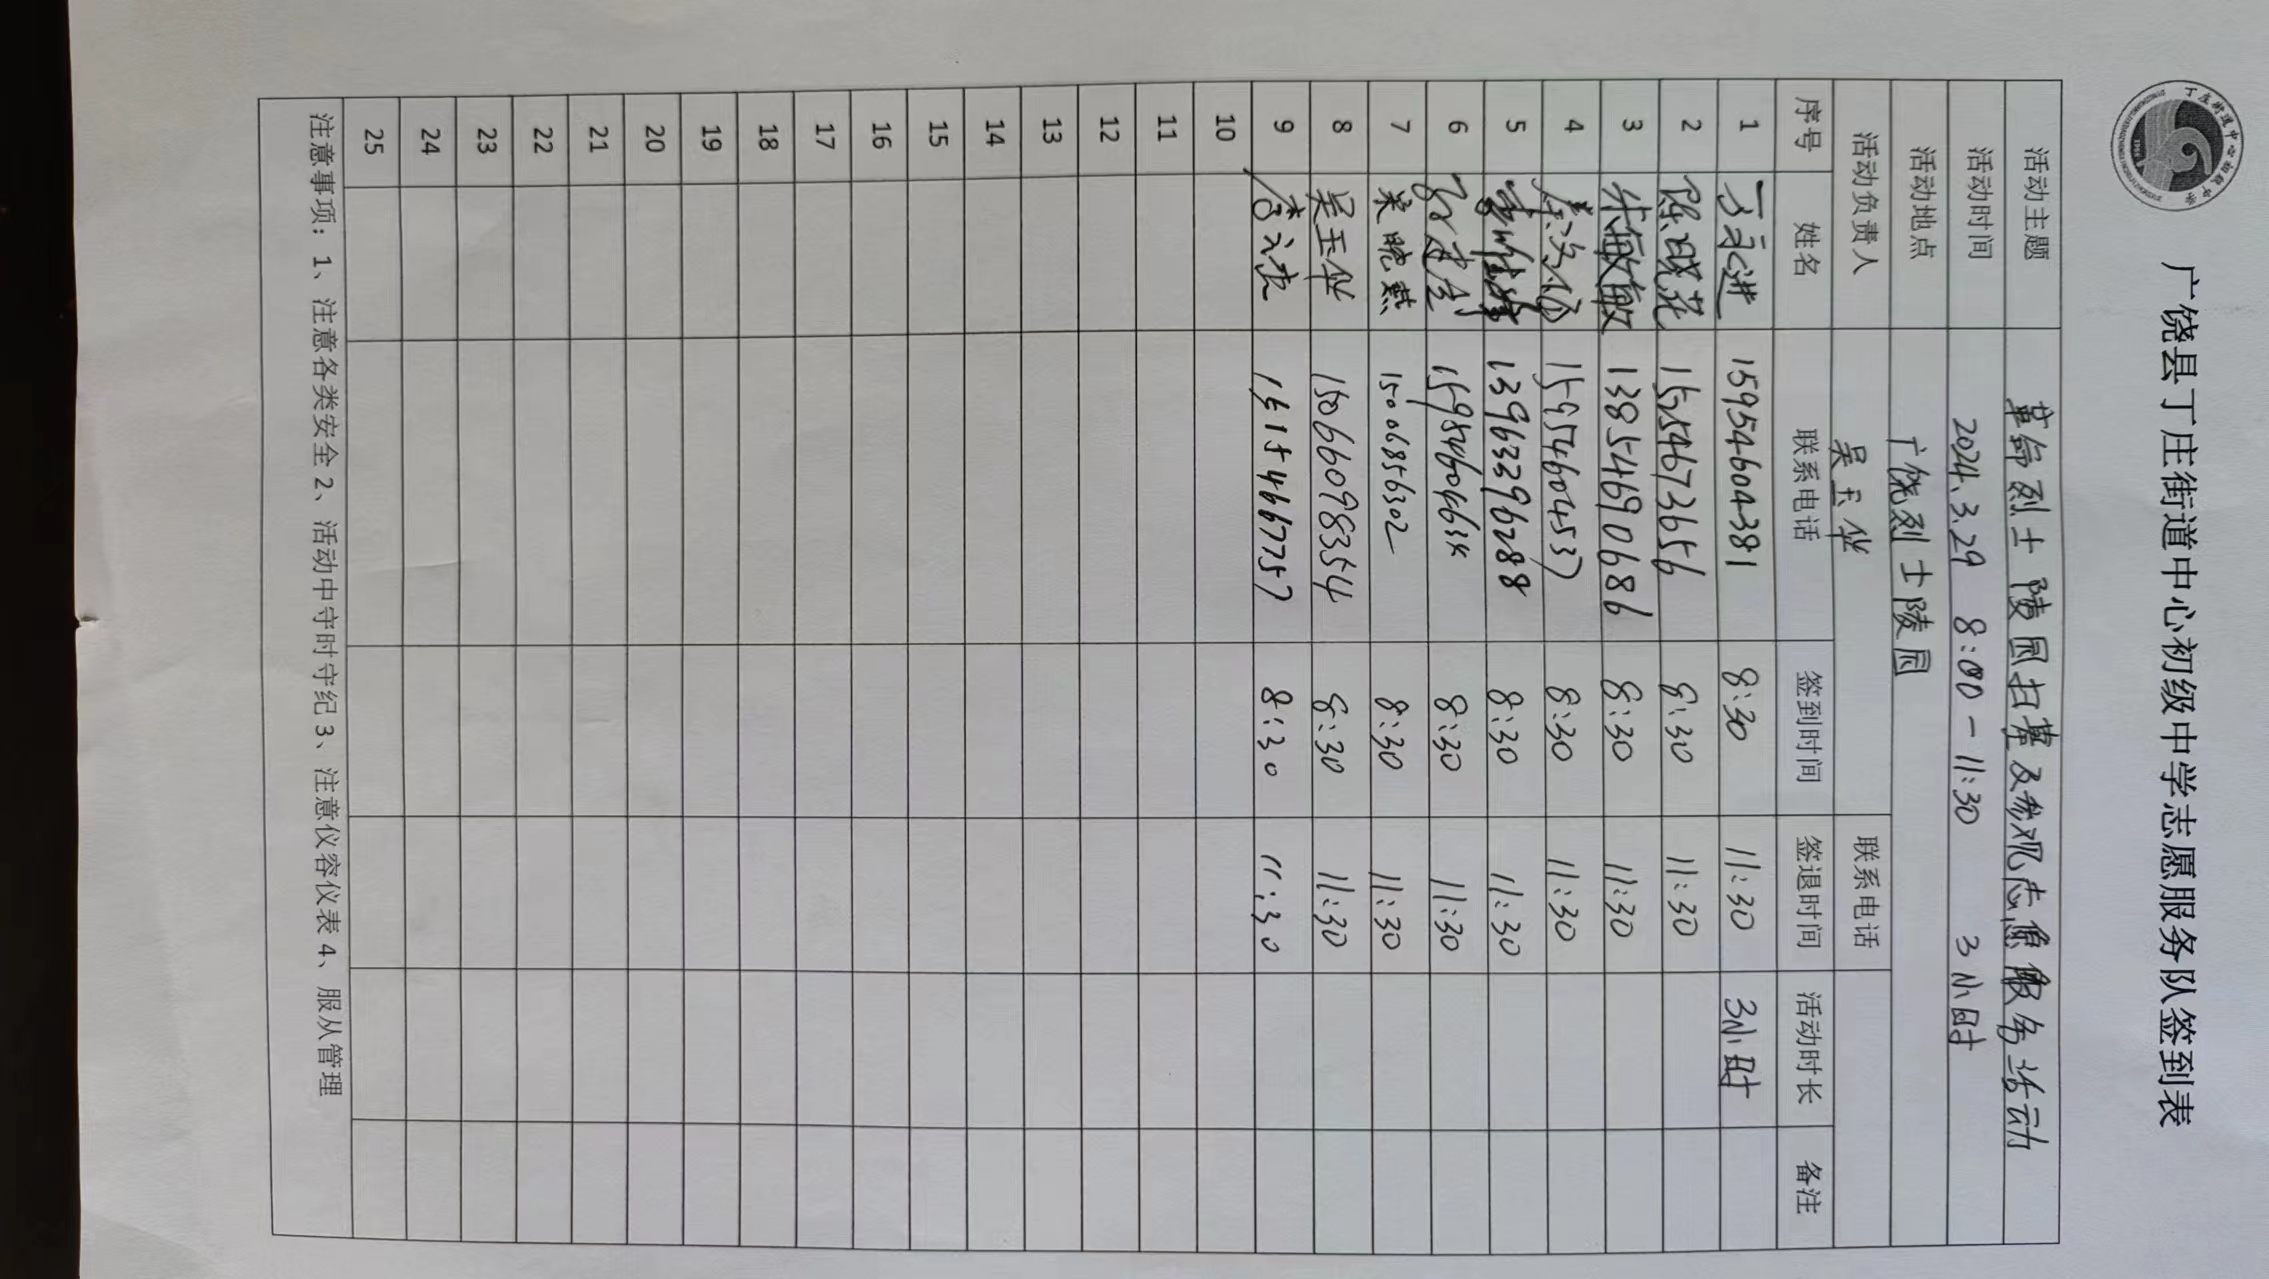 广饶县丁庄街道中心初级中学志愿服务队签到表
活动主题 革命烈士陵园扫墓及参观志愿服务活动
活动时间 2024.3.29 8:00-11:30 3小时
活动地点 广饶烈士陵园
活动负责人 吴玉华 联系电话
序号 姓名 联系电话 签到时间 签退时间 活动时长 备注
1 15954604381 8:30 11:30 3小时
2 陈晓花 15254673656 8:30 11:30
3 朱敏敏 13854690686 8:30 11:30
4 15954604537 8:30 11:30
5 13963396288 8:30 11:30
6 8:30 11:30
7 晓燕 15006856302 8:30 11:30
8 吴玉华 15066098354 8:30 11:30
9 8:30 11:30
10
11
12
13
14
15
16
17
18
19
20
21
22
23
24
25
注意事项：1、注意各类安全2、活动中守时守纪3、注意仪容仪表4、服从管理